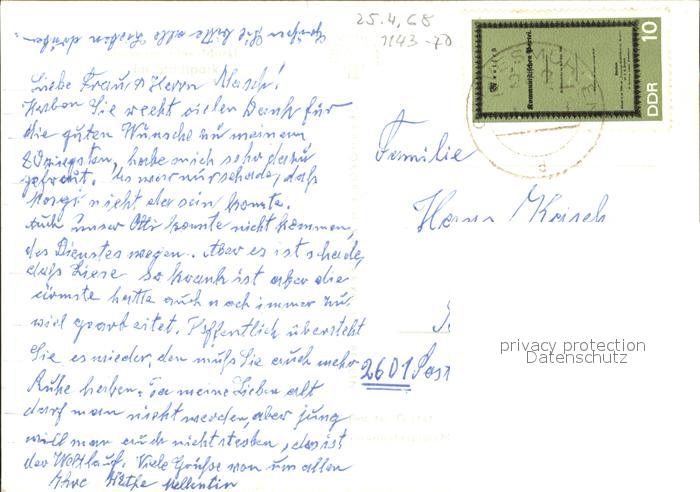 25.4.68
1143-70
Grüßen Sie bitte alle Lieben drüben
10
DDR
Manifest
Kommunistischen Partei.
Liebe Frau, & Herrn
Haben Sie recht vielen Dank für
die guten Wünsche zu meinem
habe mich sehr dazu
gefreut. Es war nur schade, daß
nicht da sein konnte.
Auch unser Otti konnte nicht kommen,
des Dienstes wegen. Aber es ist schade,
daß Liese so krank ist aber die
ärmste hatte auch noch immer zu
viel gearbeitet. Hoffentlich übersteht
Sie es wieder, den muß Sie auch mehr
Ruhe haben. Ja meine Lieben alt
darf man nicht werden, aber jung
will man auch nicht sterben, das ist
der Weltlauf. Viele Grüße von uns allen
Ihre Käthe Mellentin
Familie
2601
privacy protection
Datenschutz